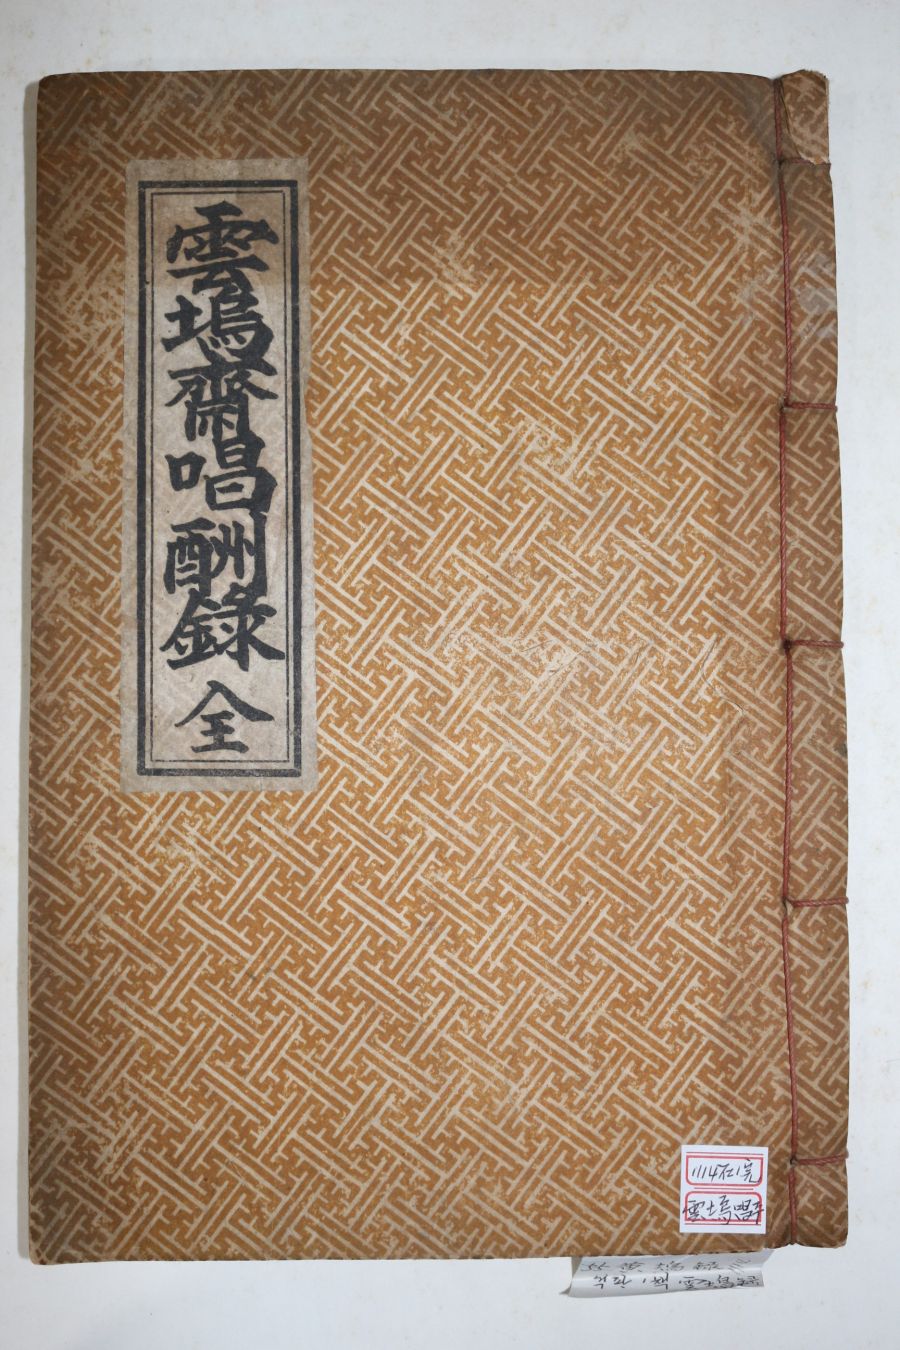 雲塢齋唱酬錄 全
1114石1完
雲塢唱